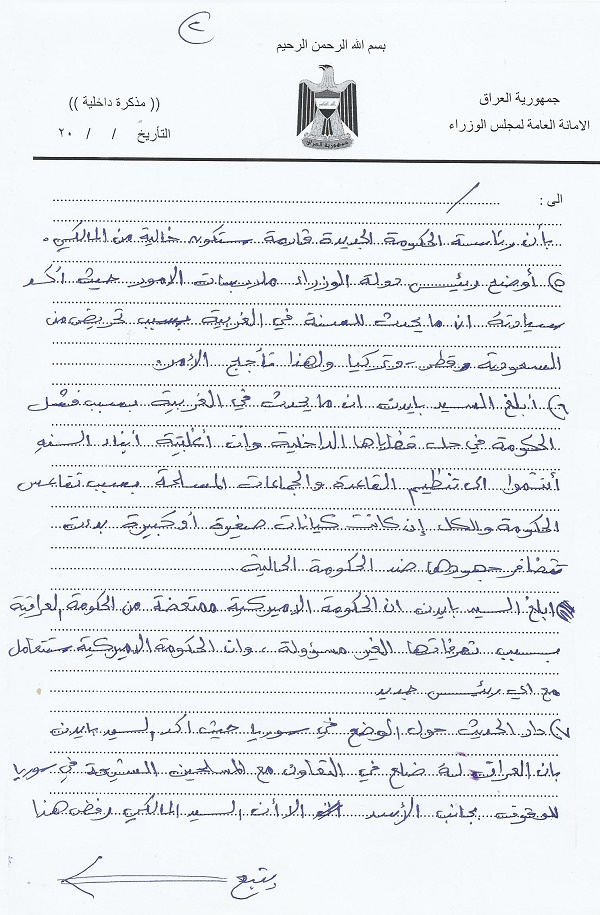 ٤
بسم الله الرحمن الرحيم
جمهورية العراق
الامانة العامة لمجلس الوزراء
(( مذكرة داخلية ))
التأريخ / / ٢٠
جمهورية العراق
الى : /
بأن رئاسة الحكومة الجديدة قادمة ستكون خالية من المالكي .
٥) أوضح رئيس دولة الوزراء ملابسات الامور حيث أكد
سيادته ان ما يحدث للسنة في الغربية بسبب تحريض من
السعودية وقطر وتركيا ولهذا تأجج الأمن
٦) أبلغ السيد بايدن ان ما يحدث في الغربية بسبب فشل
الحكومة في حل قضاياها الداخلية وان أغلبية أبناء السنه
أنتموا الى تنظيم القاعدة والجماعات المسلحة بسبب تقاعس
الحكومة والكل إن كانت كيانات صغيرة أو كبيرة بدأت
تتضافر جهودها ضد الحكومة الحالية
ابلغ السيد بايدن ان الحكومة الاميركية ممتعضة من الحكومة لعراقية
بسبب تصرفاتها الغير مسؤولة ، وان الحكومة الاميركية ستتعامل
مع اي رئيس جديد
٧) دار الحديث حول الوضع في سوريا حيث اكد لسيد بايدن
بان العراق له ضلع في التعاون مع المسلحين الشيعة في سوريا
للوقوف بجانب الأسد الا أن السيد المالكي رفض هذا
يتبع